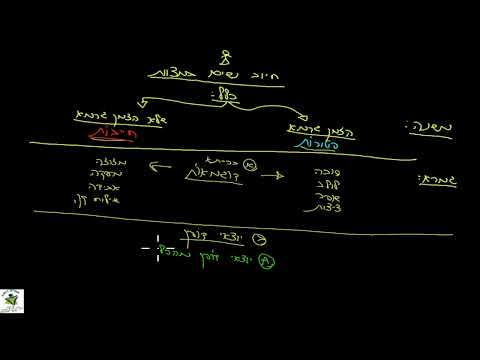 חיוב נשים במצוות
כלל:
משנה:
הזמן גרמא
פטורות
שלא הזמן גרמא
חייבות
גמרא:
א ברייתא
דוגמאות
סוכה
לולב
שופר
ציצית
מזוזה
מעקה
אבידה
שילוח הקן
ב יוצאי דופן
A יוצאי דופן מהכלל